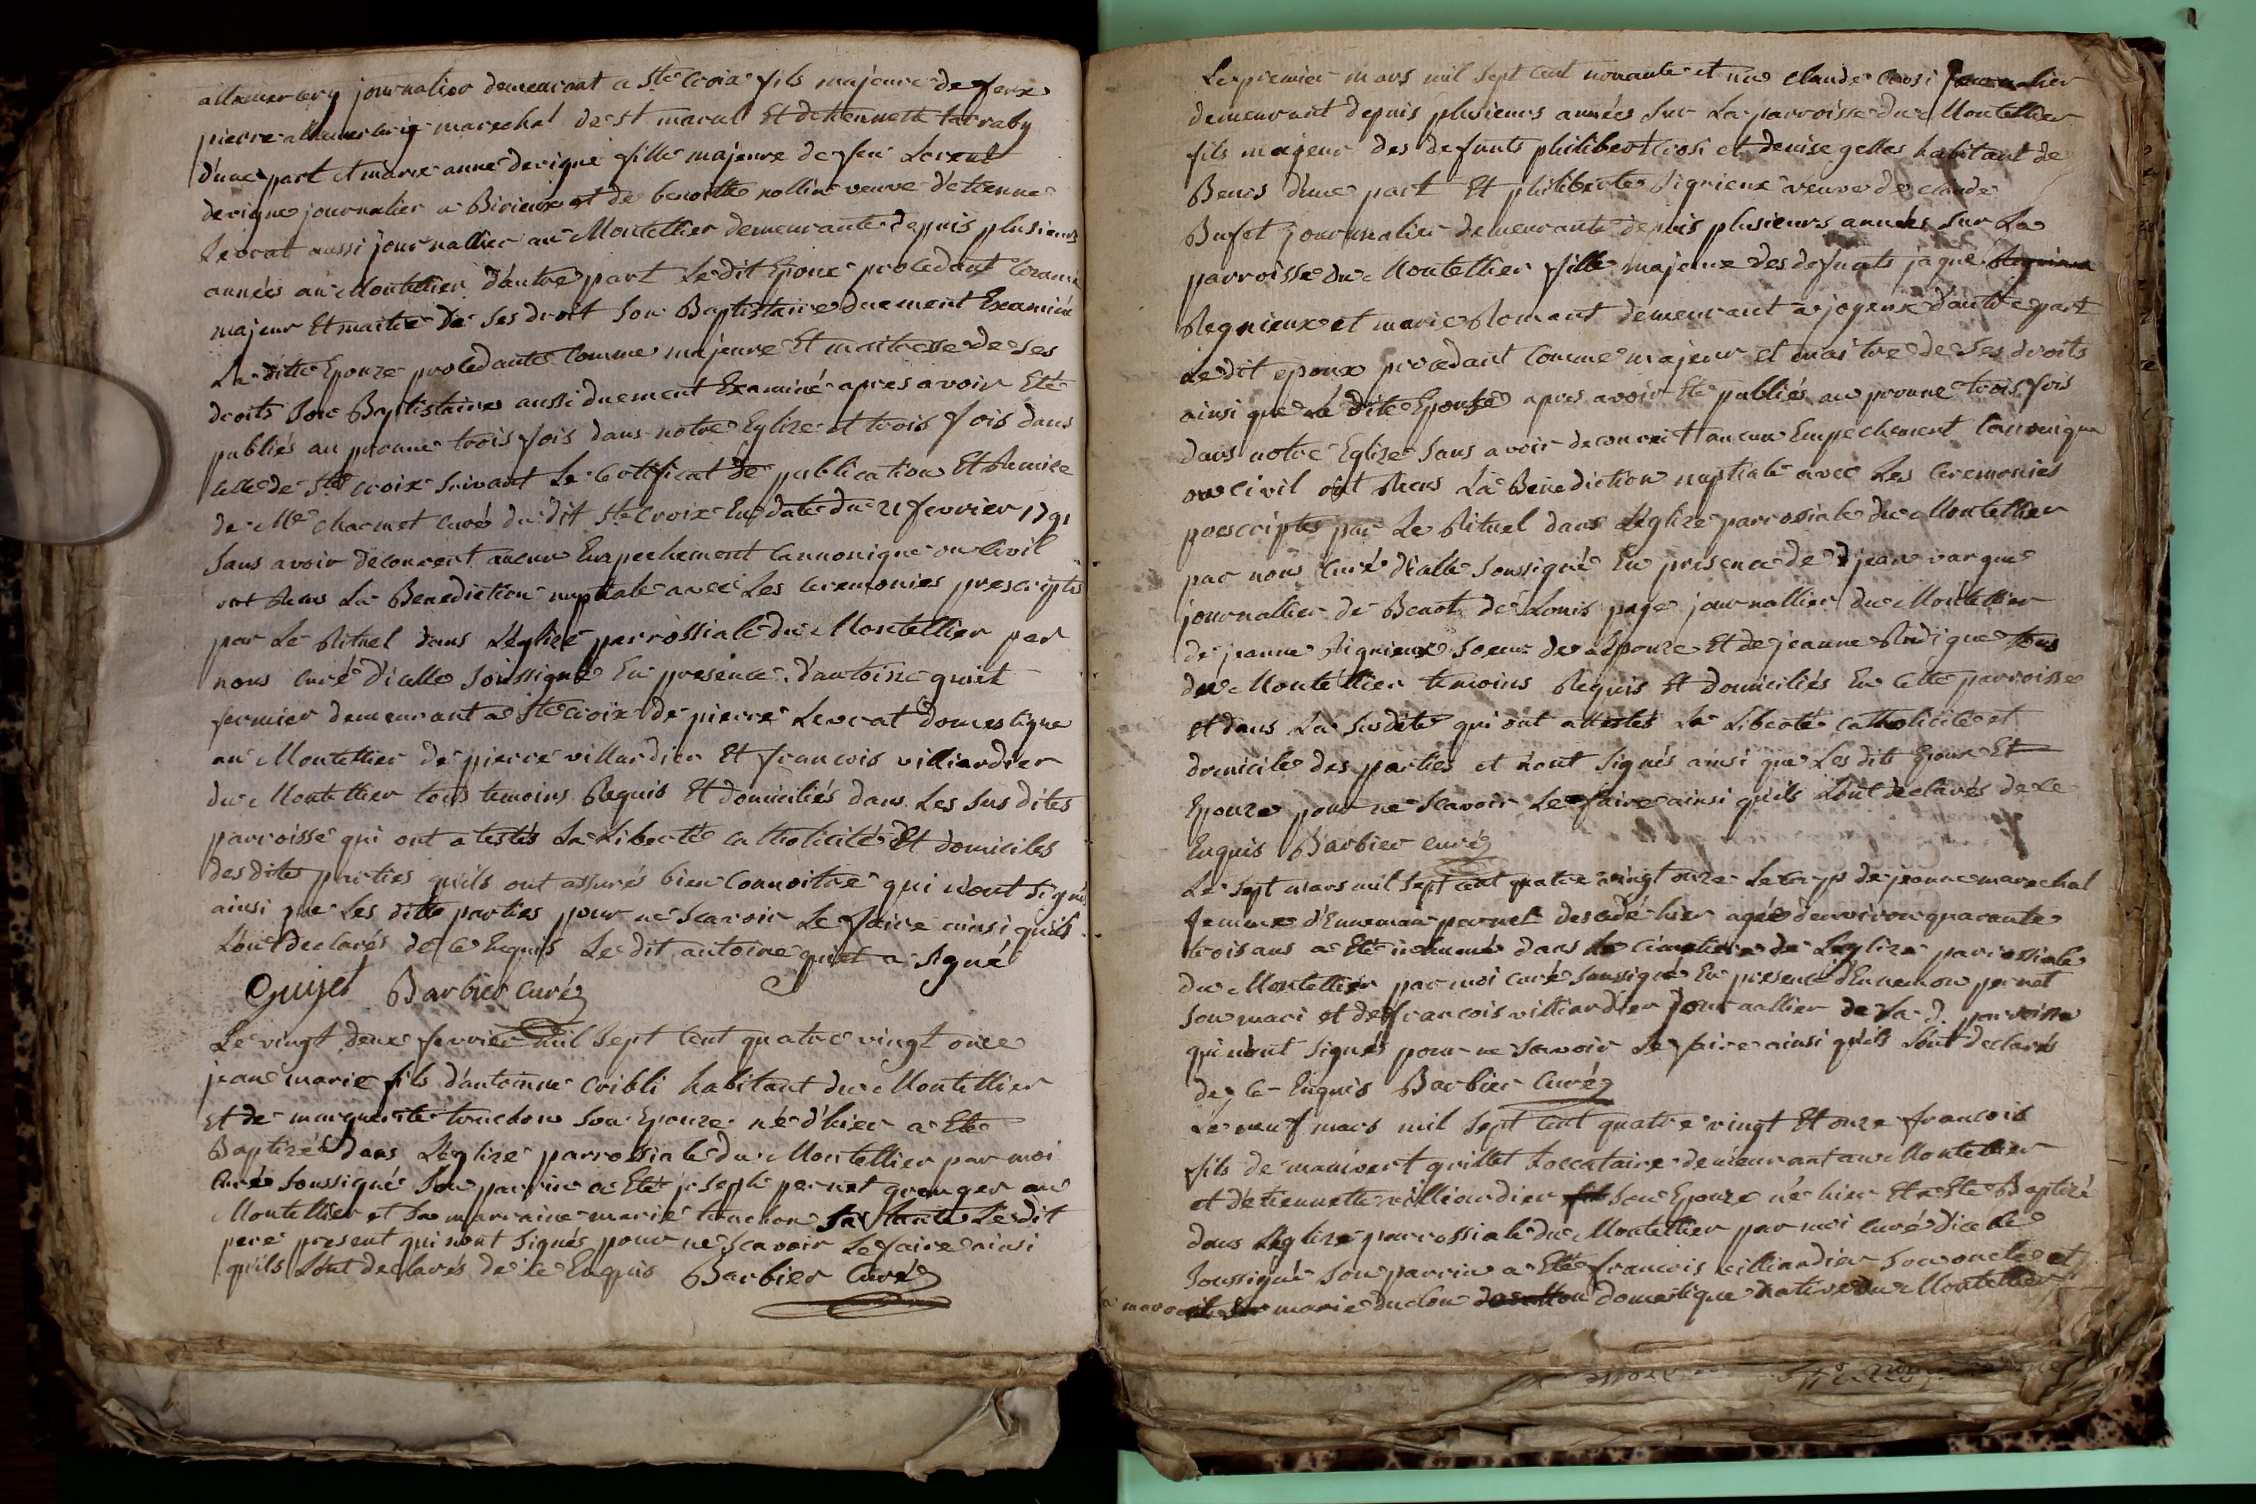 journalier demeurant a Ste Croix fils majeure de feux
pierre marechal de st marcel Et detiennette larraby
d'une part et marie anne derigne fille majeure de feu
derigne journalier a Birieux et de benoitte nollin veuve d'etienne
Levrat aussi journallier au Montellier demeurante depuis plusieurs
années au Montellier d'autre part Le dit Epoux procedant Comme
majeur Et maitre De Ses droit Son Baptistaire duement Examiné
La ditte Epouze procedante Comme majeure Et maitresse de Ses
droits Son Baptistaire aussi duement Examiné apres avoir Eté
publiés au prosne trois fois dans notre Eglize et trois fois dans
Celle de Ste Croix Suivant Le Certificat de publication Et Remise
de Mre charmet curé du dit Ste Croix En date du 21 fevrier 1791
Sans avoir decouvert aucun Empechement Cannonique ou Civil
ont Recus La Benediction nuptiale avec Les Ceremonies prescriptes
par Le Rituel dans L'eglize parrossiale du Montellier par
nous curé d'icelle Soussigné En presence d'antoine guiet
fermier demeurant a Ste Croix de pierre Levrat domestique
au Montellier de pierre villardier Et francois villiardier
du Montellier tous temoins Requis Et domiciliés dans Les Sus dites
parroisse qui ont atestés La Liberté catholicité Et domiciles
des dites parties quils ont assurés bien Connoitre qui n'ont Signé
ainsi que Les ditte parties pour ne Scavoir Le faire ainsi quils
L'ont declarés de ce Enquis Le dit antoine guiet a Signé
Guyet Barbier Curé
Le vingt deux fevrier mil Sept Cent quatre vingt onze
jean marie fils d'antoinne Cribli habitant du Montellier
Et de marguerite truchon Son Epouze né d'hier a Eté
Baptizé dans L'eglize parrossiale du Montellier par moi
Curé Soussigné Son parrin a Eté joseph pernet granger au
Montellier et Sa marraine marie truchon Sa tante Le dit
pere present qui n'ont Signés pour ne Scavoir Le faire ainsi
quils L'ont declarés de ce Enquis Barbier Curé
Le premier mars mil Sept Cent nonante et un claude Crosi journalier
demeurant depuis plusieurs années Sur La parroisse du Montellier
fils majeur des defunts philibert Crosi et denise gelles habitant de
d'une part Et philiberte Rignieux veuve de claude
Bufet journalier demeurante depuis plusieurs années Sur La
parroisse du Montellier fille majeure des defunts jaque
Regnieux et marie Romant demeurant a joyeux d'autre part
Le dit epoux procedant Comme majeur et maitre de Ses droits
ainsi que La dite Epouse apres avoir Eté publiés au prosne trois fois
dans notre Eglize Sans avoir decouvert aucun Empechement Cannonique
ou civil ont Recus La Benediction nuptiale avec Les Ceremonies
prescriptes par Le Rituel dans L'eglize parrossiale du Montellier
par nous Curé d'icelle Soussigné En presence de jean vargue
journallier de Benot de Louis page journallier du Montellier
de jeanne Rignieux Soeur de L'epouze Et de jeanne Rudigue tous
du Montellier temoins Requis Et domiciliés En cette parroisse
et dans La Susdite qui ont attestés La Liberté catholicité et
domicile des parties et n'ont Signés ainsi que Les dits Epoux Et
Epouze pour ne Scavoir Le faire ainsi quils L'ont declarés de ce
Enquis Barbier curé
Le Sept mars mil Sept Cent quatre vingt onze Le Corps de jeanne marechal
femme d'Ennemon pernet decedé hier agée d'environ quarante
trois ans a Eté inhumé dans Le Cimetiere de L'eglize parrossiale
du Montellier par moi curé Soussigné En presence d'Ennemon pernet
Son mari et de francois villiardier journallier de La d. parroisse
qui n'ont Signés pour ne Scavoir Le faire ainsi quils L'ont declarés
de ce Enquis Barbier Curé
Le neuf mars mil Sept Cent quatre vingt Et onze francois
fils de manivert grillet Loccataire demeurant au Montellier
et d'etiennette villiardier Son Epouze né hier Et a Eté Baptizé
dans L'eglize parrossiale du Montellier par moi Curé d'icelle
Soussigné Son parrin a Eté francois villiardier Son oncle et
marie duclou domestique native du Montellier